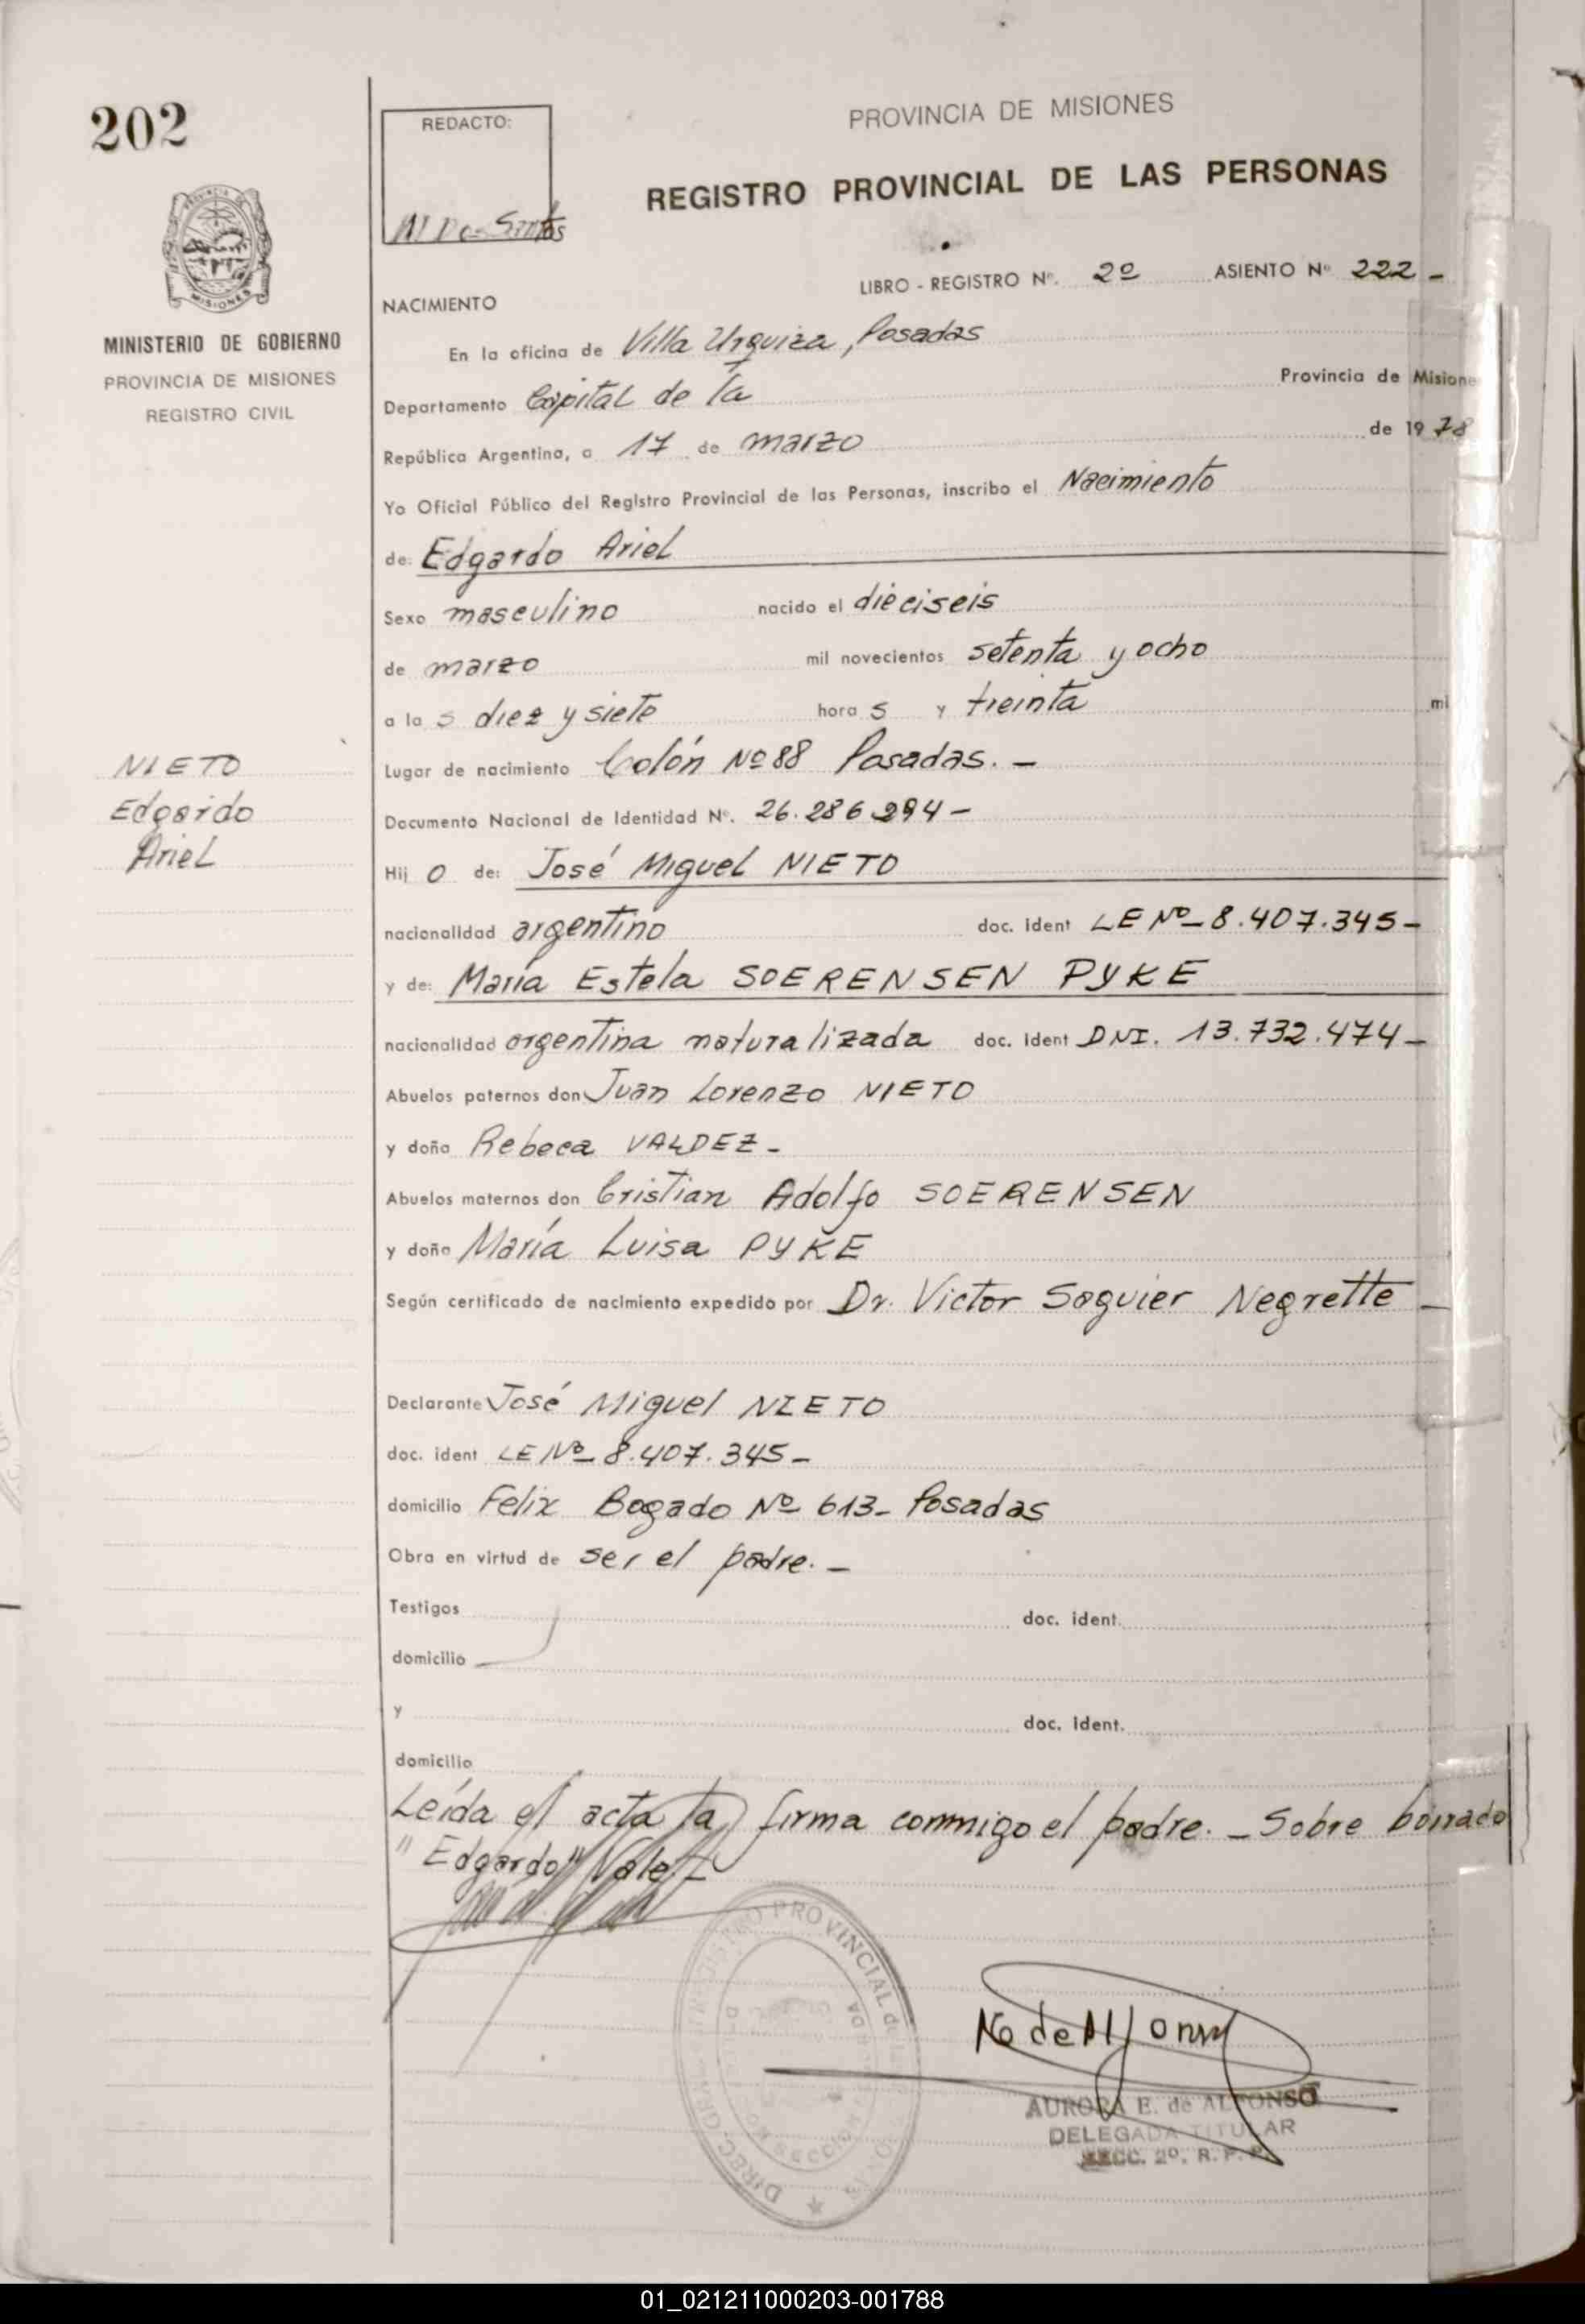 202
REDACTO:
M Dos Santos
PROVINCIA DE MISIONES
REGISTRO PROVINCIAL DE LAS PERSONAS
MISIONES
MINISTERIO DE GOBIERNO
PROVINCIA DE MISIONES
REGISTRO CIVIL
LIBRO - REGISTRO Nº. 2º ASIENTO Nº 222 -
NACIMIENTO
En la oficina de Villa Urquiza, Posadas
Departamento Capital de la Provincia de Misione
República Argentina, a 17 de marzo de 1978
Yo Oficial Público del Registro Provincial de las Personas, inscribo el Nacimiento
de: Edgardo Ariel
Sexo masculino nacido el dieciseis
de marzo mil novecientos setenta y ocho
a la s diez y siete hora s y treinta mi
Lugar de nacimiento Colón Nº 88 Posadas. -
Documento Nacional de Identidad Nº. 26.286.294 -
NIETO
Edgardo
Ariel
Hij o de: José Miguel NIETO
nacionalidad argentino doc. ident LE Nº - 8.407.345 -
y de: María Estela SOERENSEN PYKE
nacionalidad argentina naturalizada doc. ident DNI. 13.732.474 -
Abuelos paternos don Juan Lorenzo NIETO
y doña Rebeca VALDEZ -
Abuelos maternos don Cristian Adolfo SOERENSEN
y doña María Luisa PYKE
Según certificado de nacimiento expedido por Dr. Victor Saguier Negrette -
Declarante José Miguel NIETO
doc. ident LE Nº - 8.407.345 -
domicilio Felix Bogado Nº 613 - Posadas
Obra en virtud de ser el padre. -
Testigos doc. ident.
domicilio
y doc. ident.
domicilio
Leída el acta la firma conmigo el padre. - Sobre borrado
"Edgardo" Vale. -
PROVINCIAL de
DIREC. GRAL.
SECCION
N. de Alfonso
AURORA E. de ALFONSO
DELEGADA TITULAR
SECC. 2º. R. P. P.
01_021211000203-001788